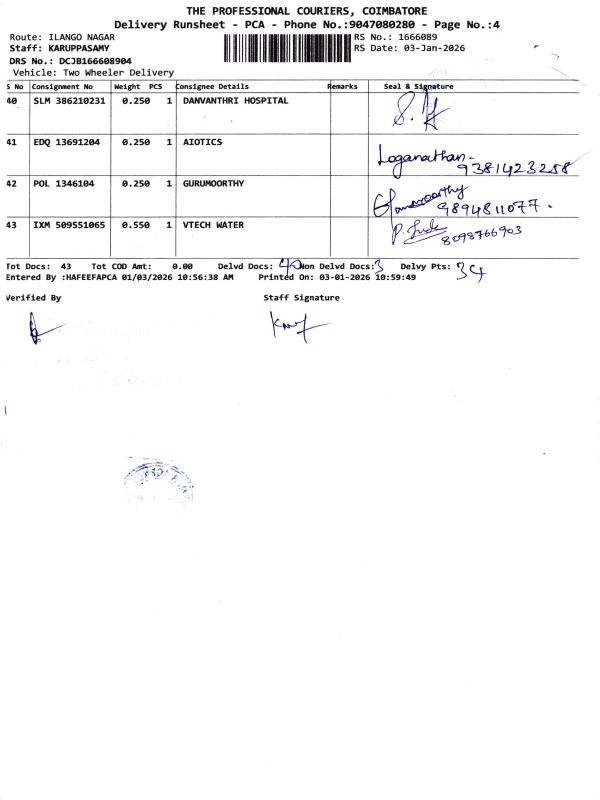 THE PROFESSIONAL COURIERS, COIMBATORE
Delivery Runsheet - PCA - Phone No.:9047080280 - Page No.:4
Route: ILANGO NAGAR RS No.: 1666089
Staff: KARUPPASAMY RS Date: 03-Jan-2026
DRS No.: DCJB166608904
Vehicle: Two Wheeler Delivery
S No Consignment No Weight PCS Consignee Details Remarks Seal & Signature
40 SLM 386210231 0.250 1 DANVANTHRI HOSPITAL
41 EDQ 13691204 0.250 1 AIOTICS Loganathan - 9381423258
42 POL 1346104 0.250 1 GURUMOORTHY 9894811077.
43 IXM 509551065 0.550 1 VTECH WATER 8098766903
Tot Docs: 43 Tot COD Amt: 0.00 Delvd Docs: 40 Non Delvd Docs:3 Delvy Pts: 34
Entered By :HAFEEFAPCA 01/03/2026 10:56:38 AM Printed On: 03-01-2026 10:59:49
Verified By Staff Signature